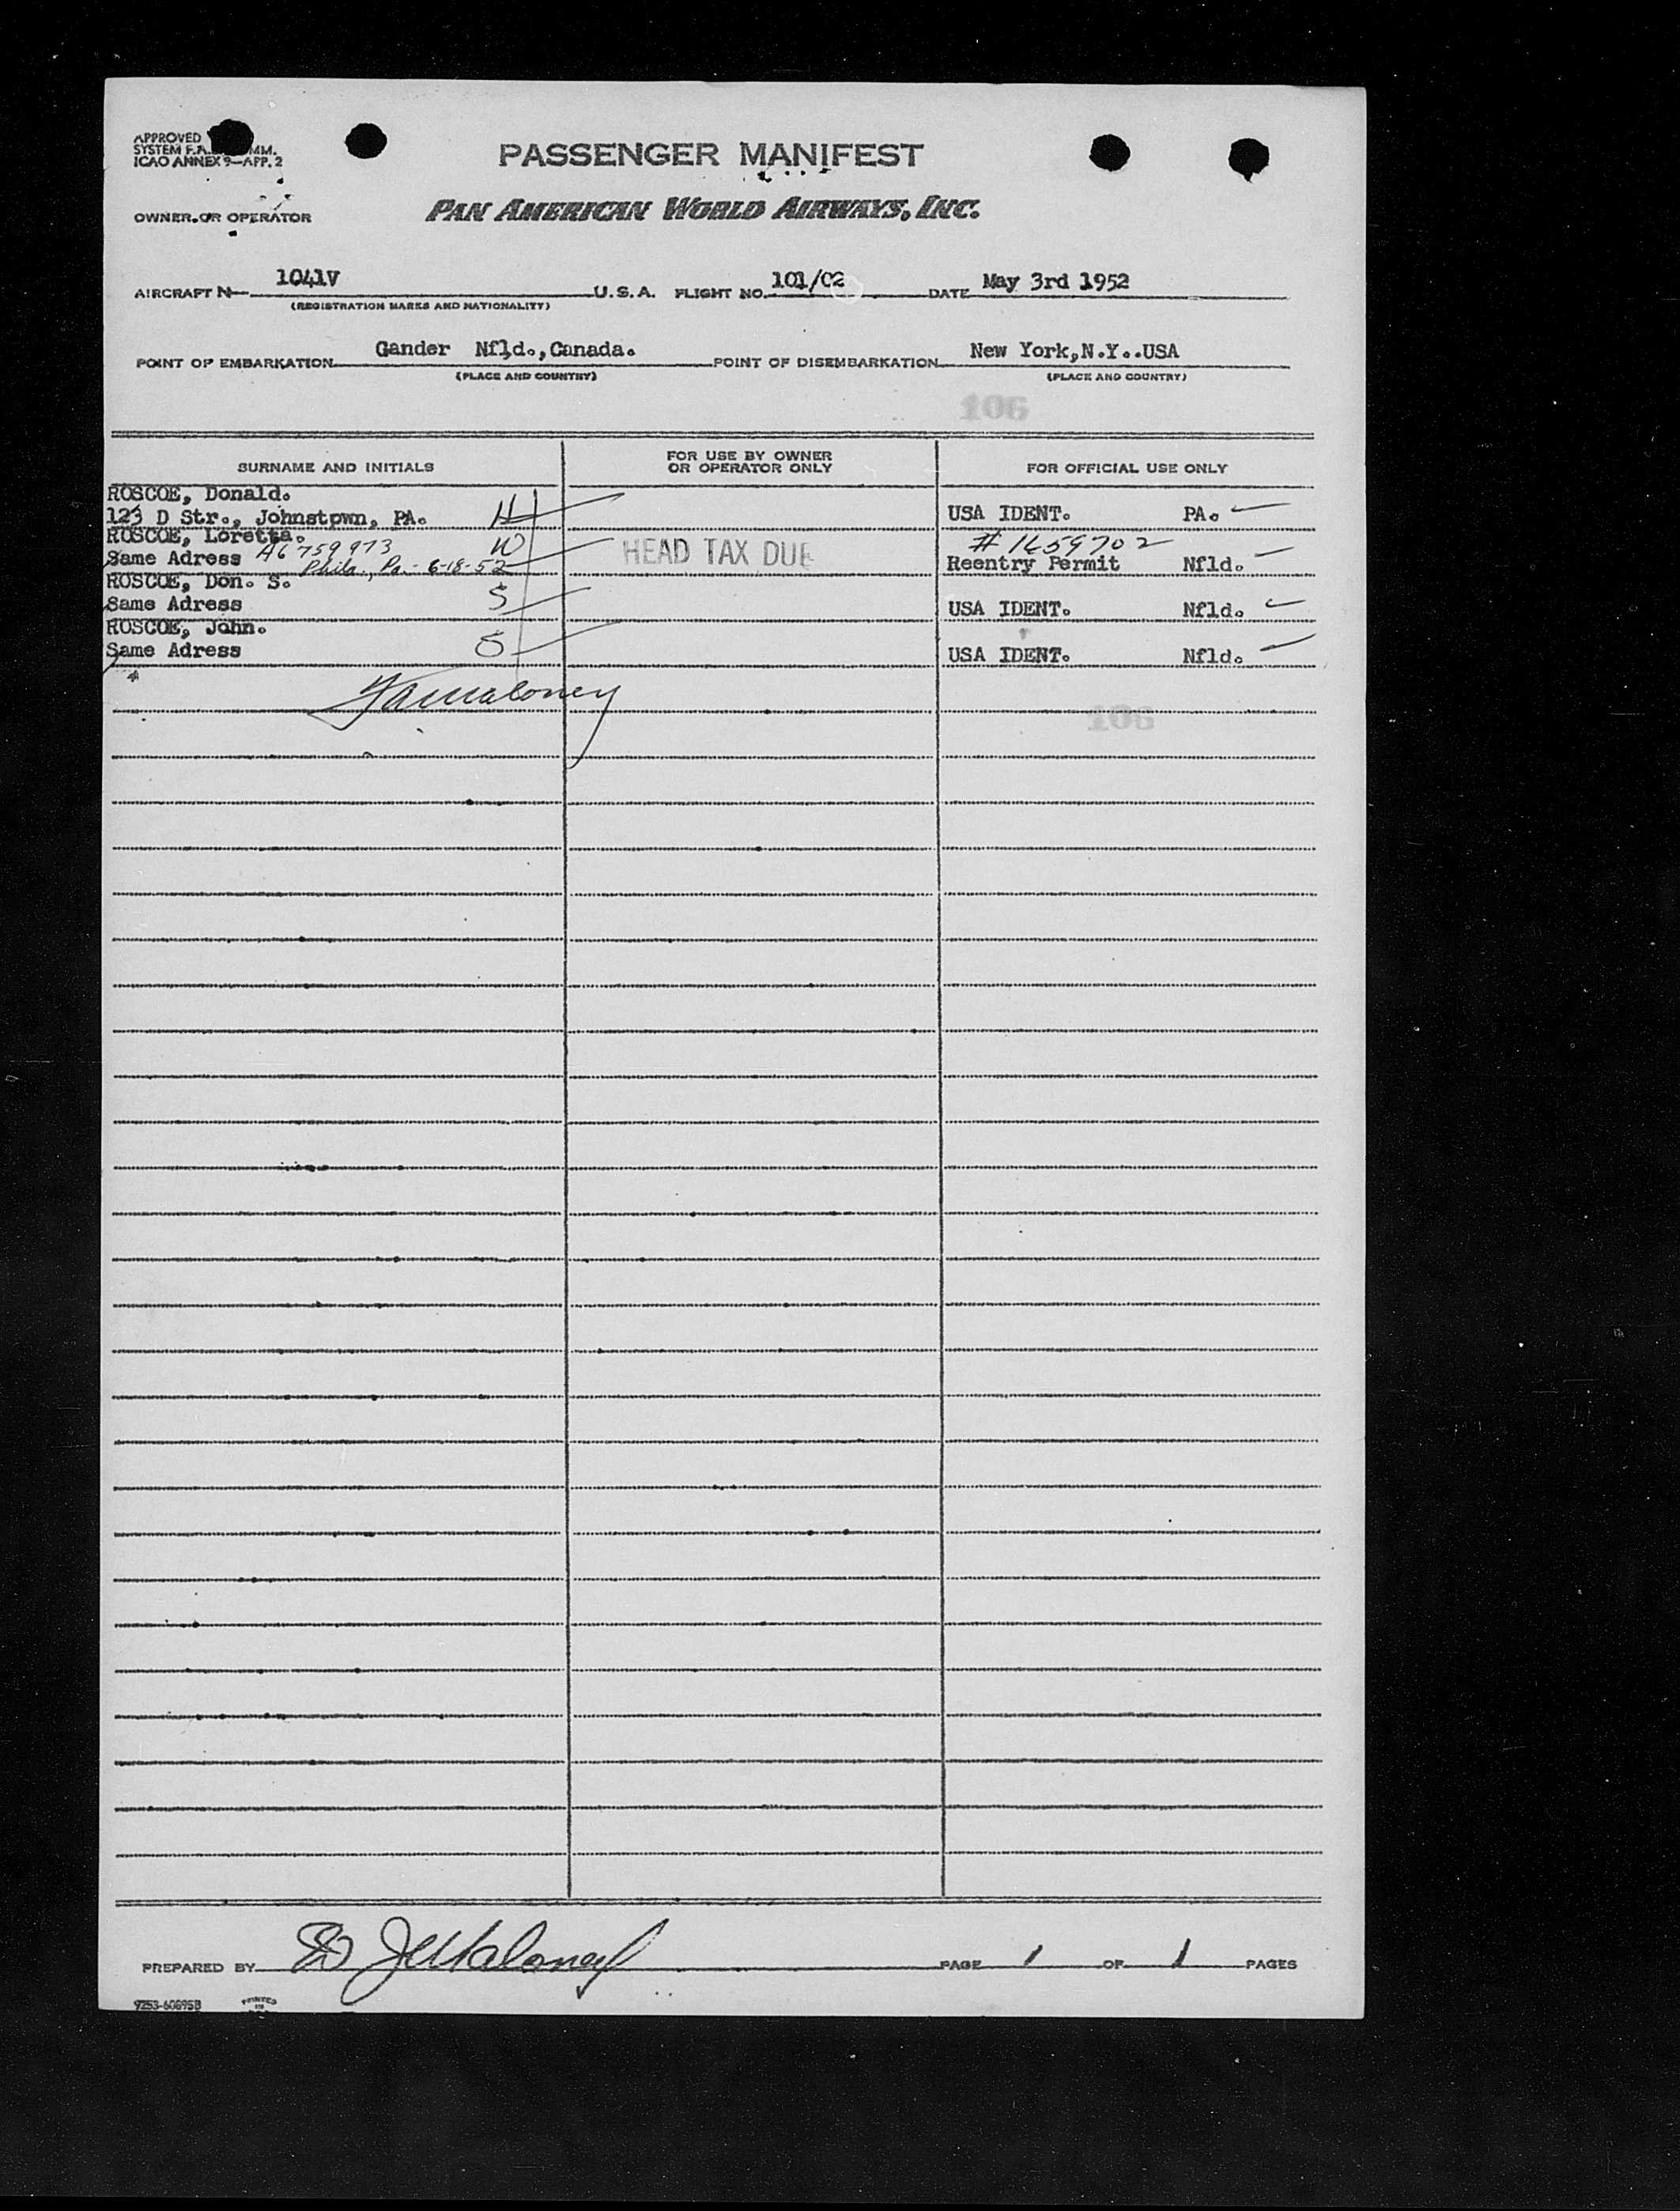 APPROVED
SYSTEM F.A. MM.
ICAO ANNEX 9—APP. 2
PASSENGER MANIFEST
OWNER OR OPERATOR PAN AMERICAN WORLD AIRWAYS, INC.
AIRCRAFT N— 1041V U.S.A. FLIGHT NO. 101/02 DATE May 3rd 1952
(REGISTRATION MARKS AND NATIONALITY)
POINT OF EMBARKATION Gander Nfld., Canada. POINT OF DISEMBARKATION New York,N.Y..USA
(PLACE AND COUNTRY) (PLACE AND COUNTRY)
106
SURNAME AND INITIALS FOR USE BY OWNER OR OPERATOR ONLY FOR OFFICIAL USE ONLY
ROSCOE, Donald.
123 D Str., Johnstown, PA. H USA IDENT. PA.
ROSCOE, Loretta. W # 1659702
Same Adress A6 759 973 HEAD TAX DUE Reentry Permit Nfld.
Phila., Pa. - 6-18-52
ROSCOE, Don. S.
Same Adress S USA IDENT. Nfld.
ROSCOE, John.
Same Adress S USA IDENT. Nfld.
Maloney
106
PREPARED BY Maloney PAGE 1 OF 1 PAGES
9253-60895B PRINTED IN